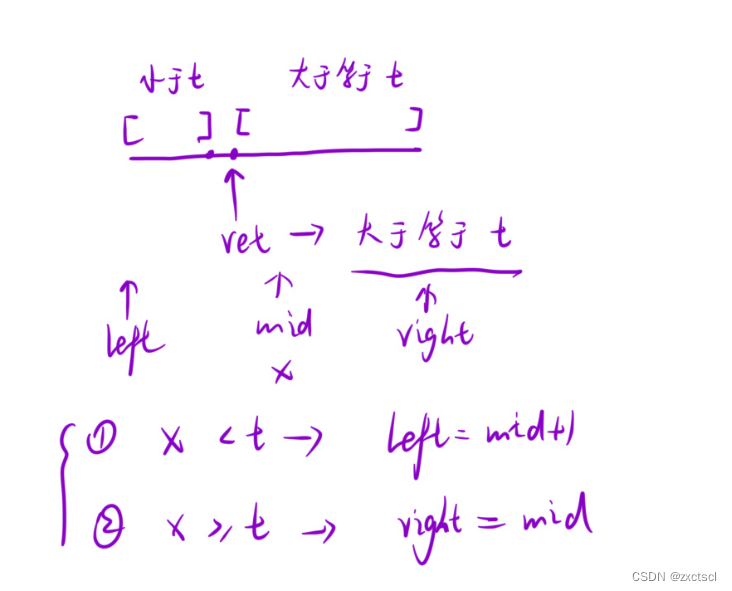 小于t 大于等于 t
[ ] [ ]
ret → 大于等于 t
↑ ↑ ↑
left mid right
x
① x < t → left = mid+1
② x ≥ t → right = mid
CSDN @zxctscl